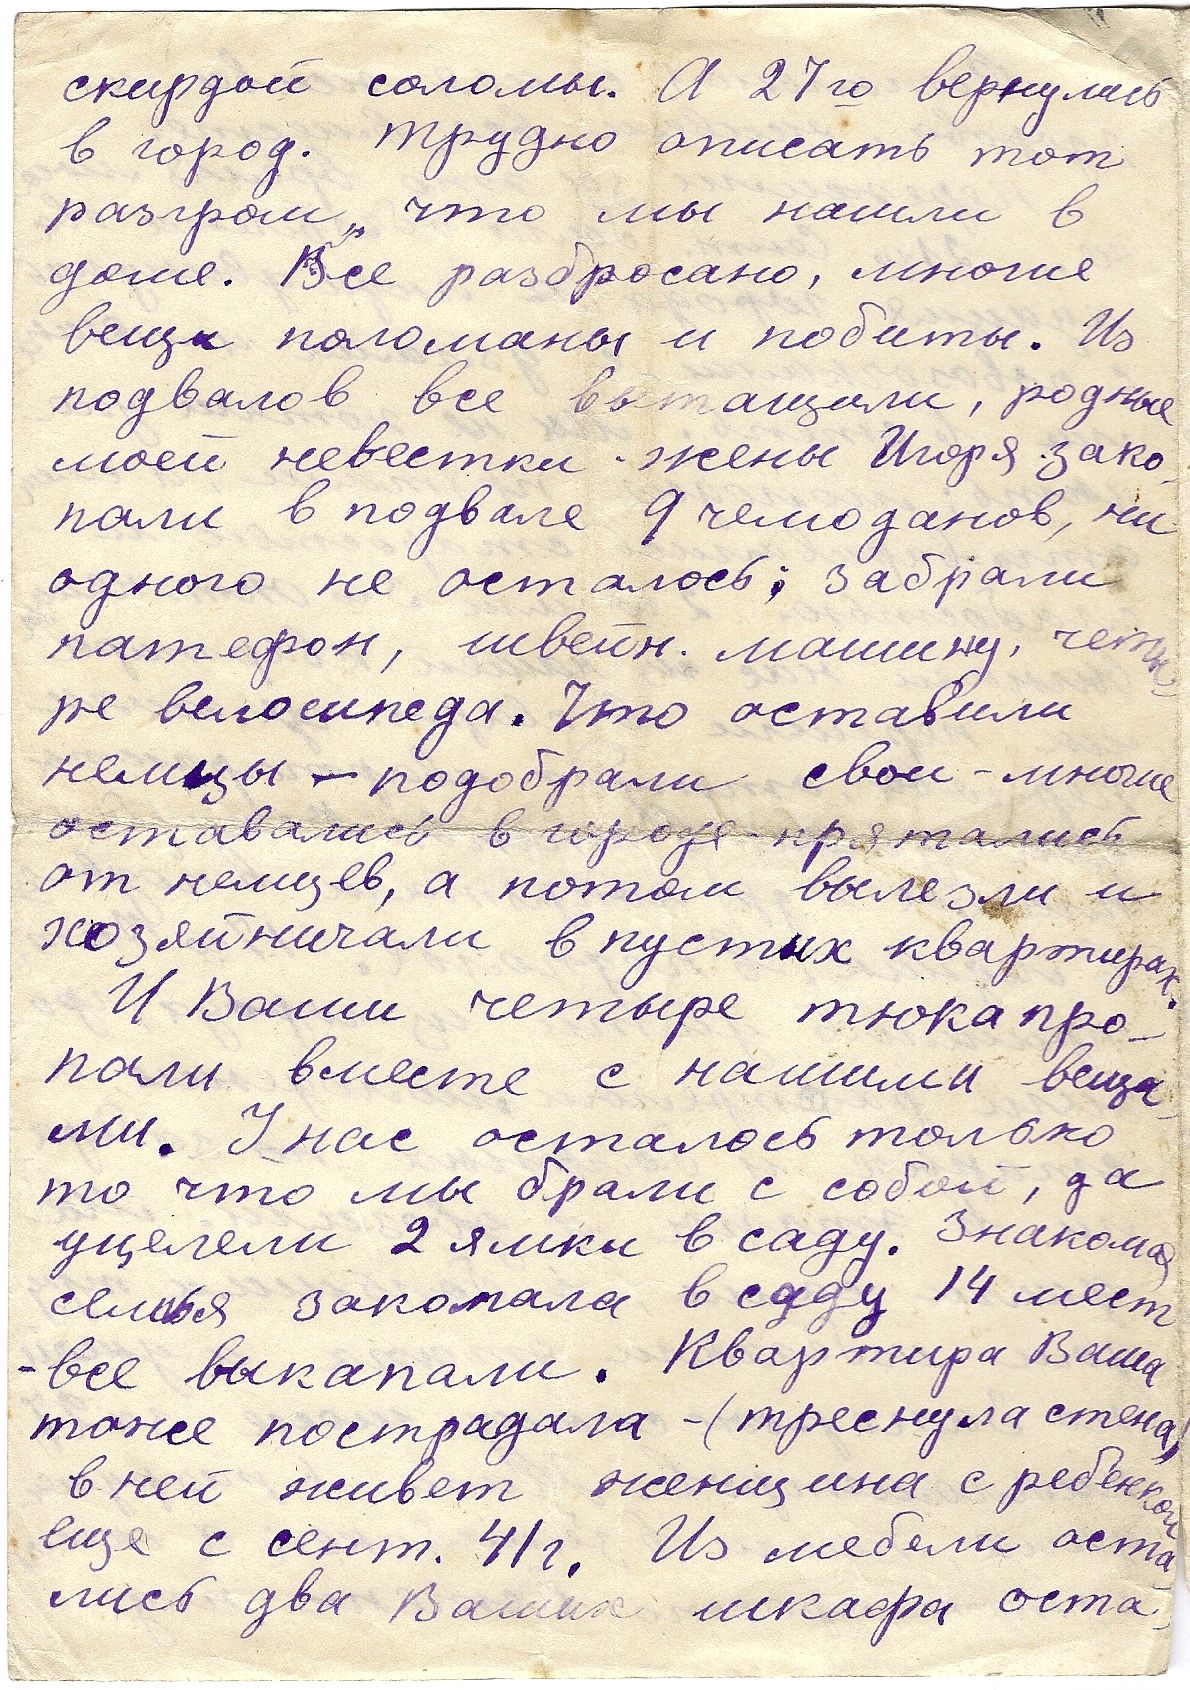 скирдой соломы. А 27го вернулись
в город. Трудно описать тот
разгром, что мы нашли в
доме. Все разбросано, многие
вещи поломаны и побиты. Из
подвалов все вытащили, родные
моей невестки - жены Игоря - зако-
пали в подвале 9 чемоданов, ни
одного не осталось; забрали
патефон, швейн. машину, четы-
ре велосипеда. Что оставили
немцы - подобрали свои - многие
оставались в городе - прятались
от немцев, а потом вылезли и
хозяйничали в пустых квартирах.
И Ваши четыре тюка про-
пали вместе с нашими веща-
ми. У нас осталось только
то что мы брали с собой, да
уцелели 2 ямки в саду. Знакомая
семья закопала в саду 14 мест
- все выкапали. Квартира Ваша
тоже пострадала - (треснула стена)
в ней живет женщина с ребенком
еще с сент. 41г. Из мебели оста
лись два Ваших шкафа оста-